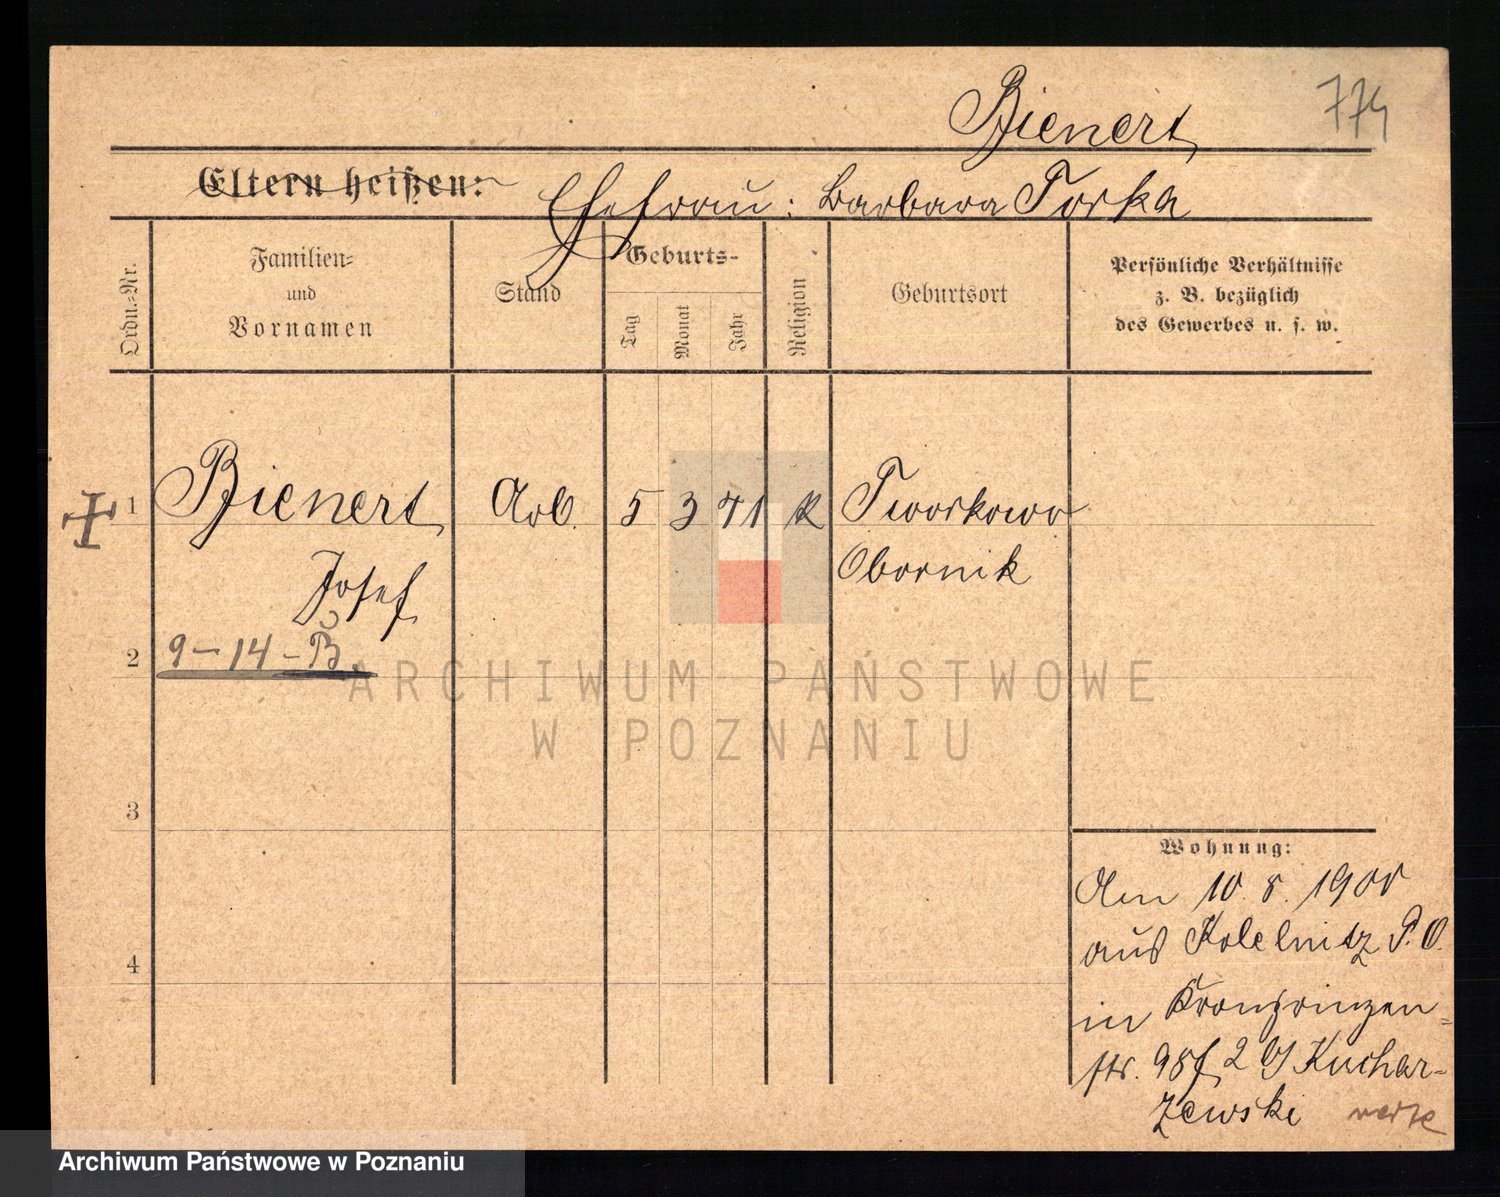 Bienert
774
Eltern heißen:
Ehefrau: Barbara Torka
Ordn.-Nr.
Familien-
und
Vornamen
Stand
Geburts-
Tag
Monat
Jahr
Religion
Geburtsort
Persönliche Verhältnisse
z. B. bezüglich
des Gewerbes u. s. w.
1 Bienert Arb. 5 3 71 K Tworkowo
Josef Obornik
2 9-14-B
3
4
Wohnung:
Am 10. 8. 1900
aus P. O.
in Kronprinzen-
str. 98 f 2 Kuchar-
zewski verte
ARCHIWUM PAŃSTWOWE
W POZNANIU
Archiwum Państwowe w Poznaniu